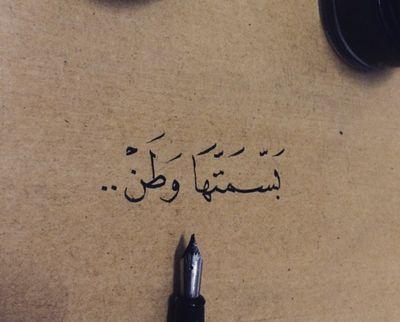 بَسّمَتّهَا وَطَنْ..